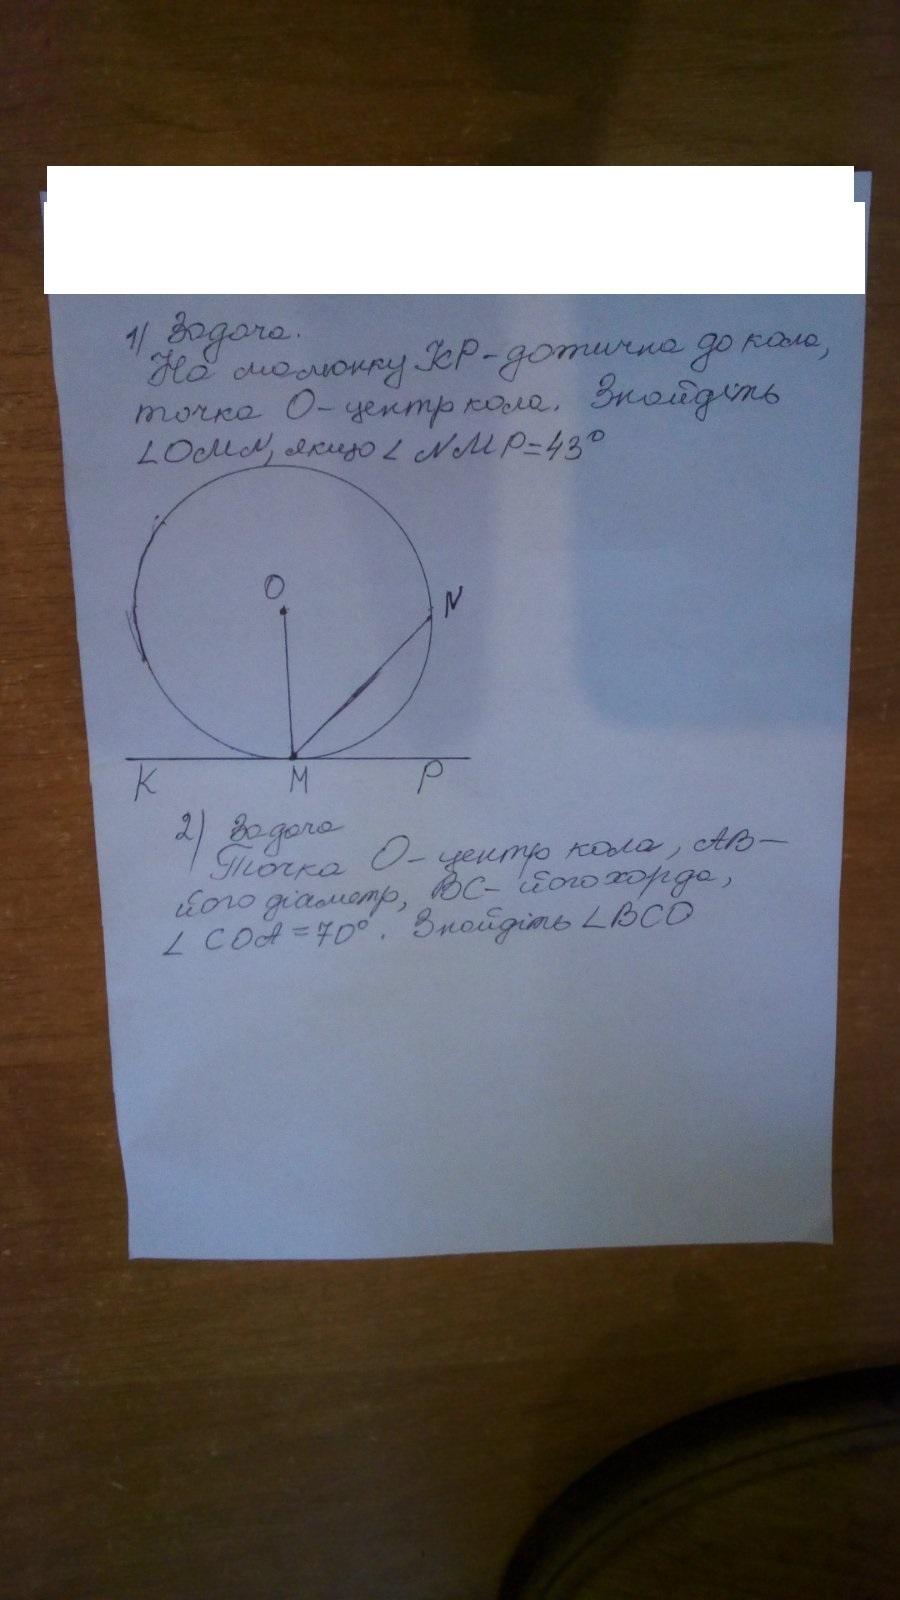 1) Задача.
На малюнку KP - дотична до кола,
точка O - центр кола. Знайдіть
∠OMN, якщо ∠NMP=43°
O
N
K
M
P
2) Задача
Точка O - центр кола, AB -
його діаметр, BC - його хорда,
∠COA=70°. Знайдіть ∠BCO